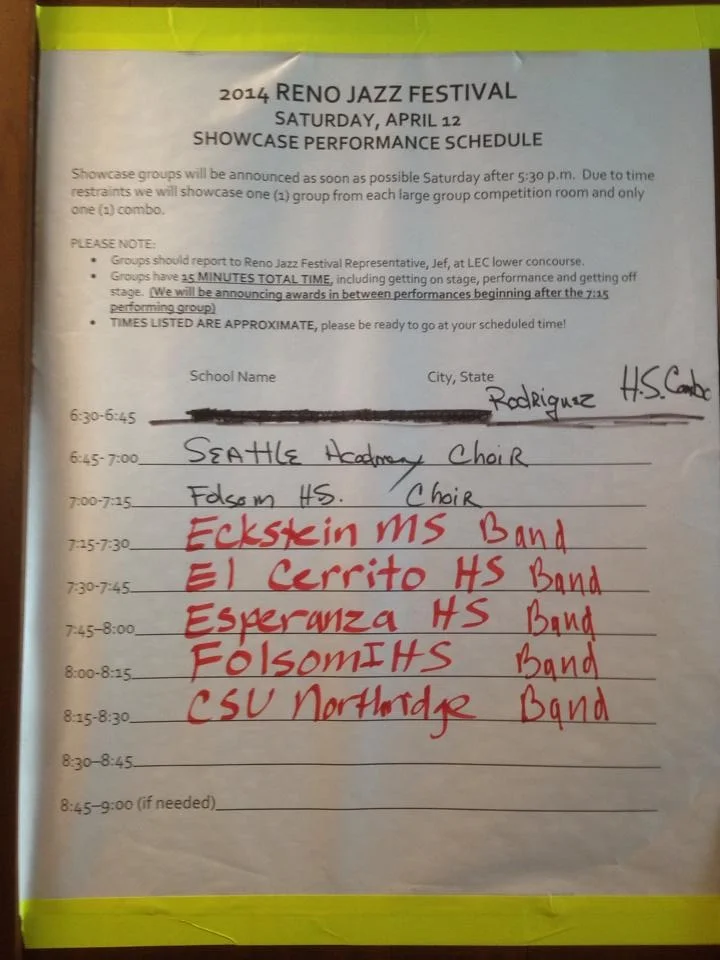 2014 RENO JAZZ FESTIVAL
SATURDAY, APRIL 12
SHOWCASE PERFORMANCE SCHEDULE
Showcase groups will be announced as soon as possible Saturday after 5:30 p.m. Due to time
restraints we will showcase one (1) group from each large group competition room and only
one (1) combo.
PLEASE NOTE:
• Groups should report to Reno Jazz Festival Representative, Jef, at LEC lower concourse.
• Groups have 15 MINUTES TOTAL TIME, including getting on stage, performance and getting off
stage. (We will be announcing awards in between performances beginning after the 7:15
performing group)
• TIMES LISTED ARE APPROXIMATE, please be ready to go at your scheduled time!
School Name City, State
6:30-6:45 Rodriguez H.S. Combo
6:45-7:00 SEATTLE Academy CHOIR
7:00-7:15 Folsom HS. CHOIR
7:15-7:30 Eckstein MS Band
7:30-7:45 El Cerrito HS Band
7:45–8:00 Esperanza HS Band
8:00-8:15 Folsom I HS Band
8:15-8:30 CSU Northridge Band
8:30–8:45
8:45–9:00 (if needed)